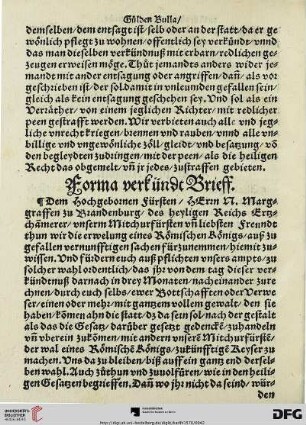 Gülden Bulla/
demselben/dem entsagt ist/selb oder an der statt/da er ge
wönlich pflegt zu wohnen/offentlich sey verkündt/vnnd
das man dieselben verkündnuß mit erbarn/redlichen ge-
zeugen erweisen möge. Thüt jemandts anders wider je-
mandt mit ander entsagung oder angriffen/dañ/als vor
geschrieben ist/der sol damit in vnleunden gefallen sein/
gleich als kein entsagung geschehen sey. Vnd sol als ein
Verräther/von einem jeglichen Richter/mit redlicher
peen gestrafft werden. Wir verbieten auch alle vnd jeg-
liche vnrecht kriegen/brennen vnd rauben/vnnd alle vn-
billige vnd vngewönliche zöll/gleidt/vnd besatzung/võ
den begleydten zudringen/mit der peen/als die heiligen
Recht das obgemelt/vñ jr jedes/zustraffen gebieten.
Forma verkünde Brieff.
¶ Dem Hochgebornen Fürsten/HErrn N. Marg-
graffen zu Brandenburg/des heyligen Reichs Ertz-
chämerer/vnserm Mitchurfürsten vñ liebsten Freundt
thun wir die erwelung eines Römischen Königs/auß zu
gefallen vernunfftigen sachen fürzunemmen/hiemit zu-
wissen. Vnd fördern euch auß pflichten vnsers ampts/zu
solcher wahl ordentlich/das jhr von dem tag dieser ver-
kündtnuß darnach in drey Monaten/nacheinander zure
chnen/durch euch selbs/ewer Bottschafften oder Verwe
ser/einen oder mehr/mit gantzem vollen gewalt/den sie
haben/kömen ahn die statt/dz da sein sol/nach der gestalt
als das die Gesatz/darüber gesetzt gedencke/zuhandeln
vñ vberein zukömen/mit andern vnserẽ Mitchurfürstẽ/
der wal eines Römischẽ Königs/zukünfftigẽ Keyser zu
machen. Vns da zu bleiben biß auff ein gantz end derfel-
ben wahl. Auch züthun vnd zuvolfüren/wie in den heili-
gen Gesatzen begrieffen. Dañ wo jhr nicht da seind/wür-
den
UNIVERSITÄTS-
BIBLIOTHEK
HEIDELBERG
DFG